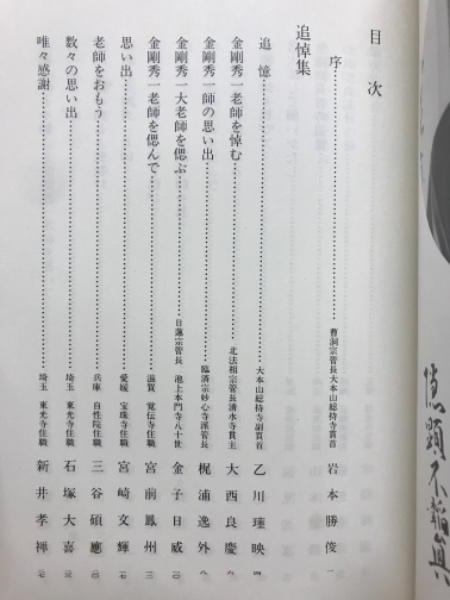 目次
序 曹洞宗管長大本山総持寺貫首 岩本勝俊 一
追悼集
追憶 大本山総持寺副貫首 乙川瑾映 四
金剛秀一老師を悼む 北法相宗管長清水寺貫主 大西良慶 六
金剛秀一師の思い出 臨済宗妙心寺派管長 梶浦逸外 八
金剛秀一大老師を偲ぶ 日蓮宗管長 池上本門寺八十世 金子日威 一〇
金剛秀一老師を偲んで 滋賀 覚伝寺住職 宮前鳳州
思い出 愛媛 宝珠寺住職 宮崎文輝
老師をおもう 兵庫 自性院住職 三谷碩應
数々の思い出 埼玉 東光寺住職 石塚大喜
唯々感謝 埼玉 東光寺住職 新井孝禅